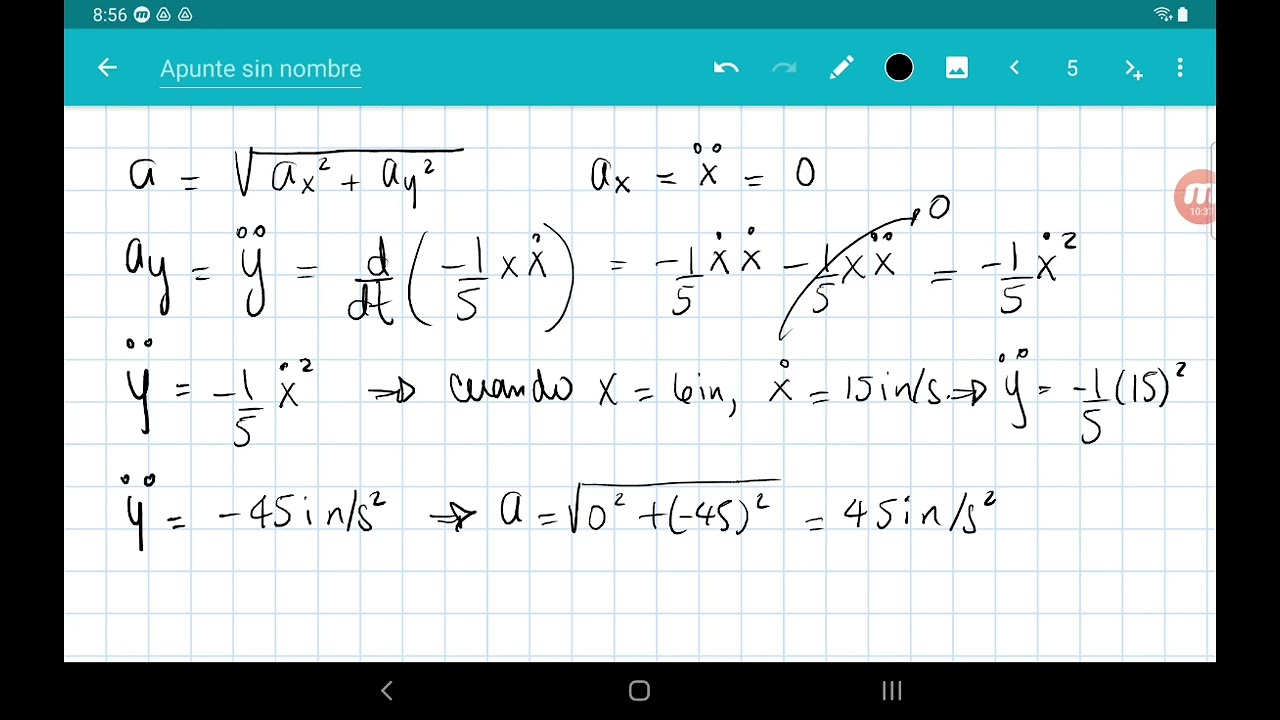 8:56
Apunte sin nombre
5
a = √(aₓ² + a_y²) aₓ = ẍ = 0
a_y = ÿ = d/dt (-1/5 xẋ) = -1/5 ẋẋ - 1/5 xẍ → 0 = -1/5 ẋ²
ÿ = -1/5 ẋ² ⇒ cuando x = 6in, ẋ = 15in/s. ⇒ ÿ = -1/5 (15)²
ÿ = -45in/s² ⇒ a = √(0² + (-45)²) = 45in/s²